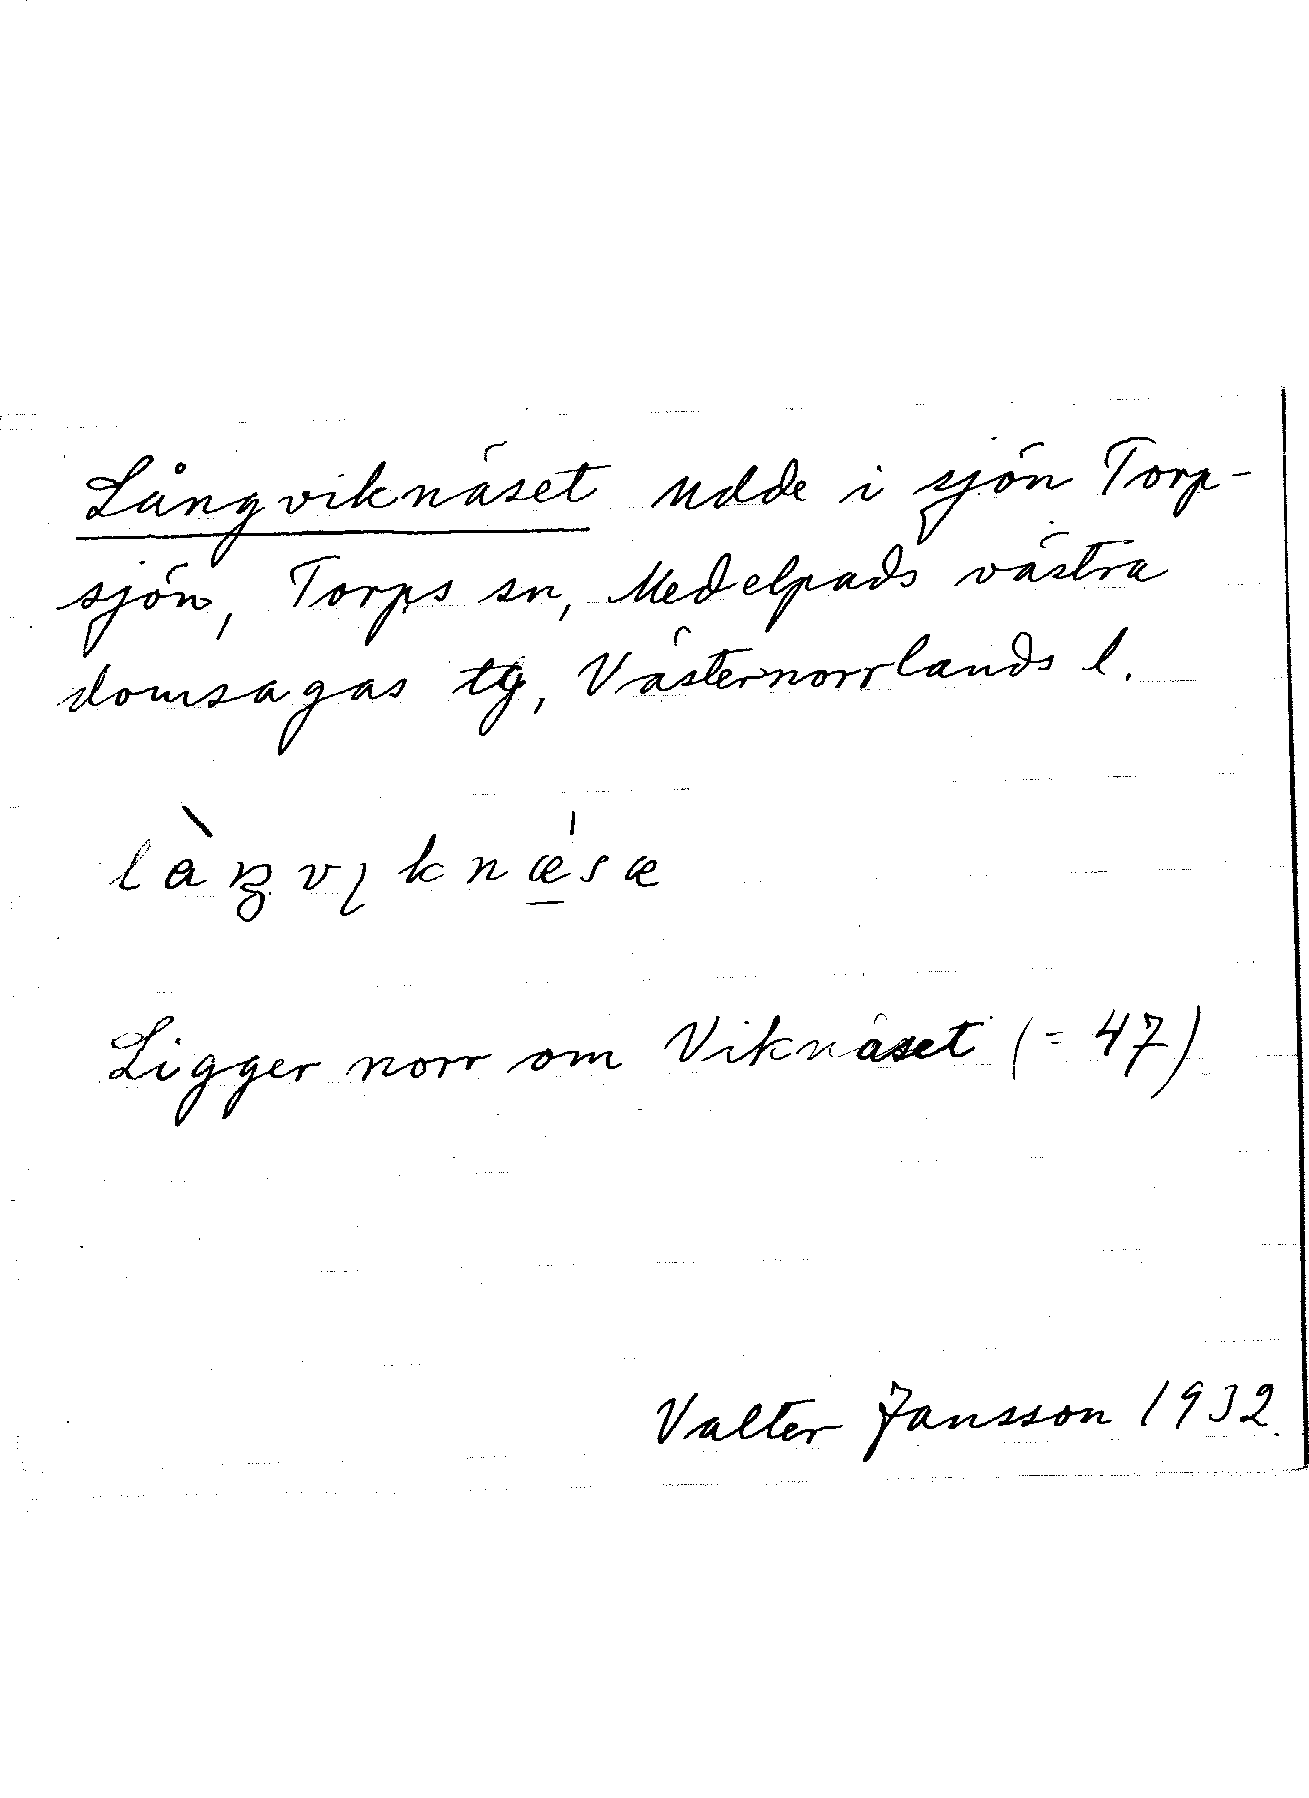 Långviknäset udde i sjön Torp-
sjön, Torps sn, Medelpads västra
domsagas tg, Västernorrlands l.
làŋvıknǽ̱sæ
Ligger norr om Viknäset (= 47)
Valter Jansson 1932.